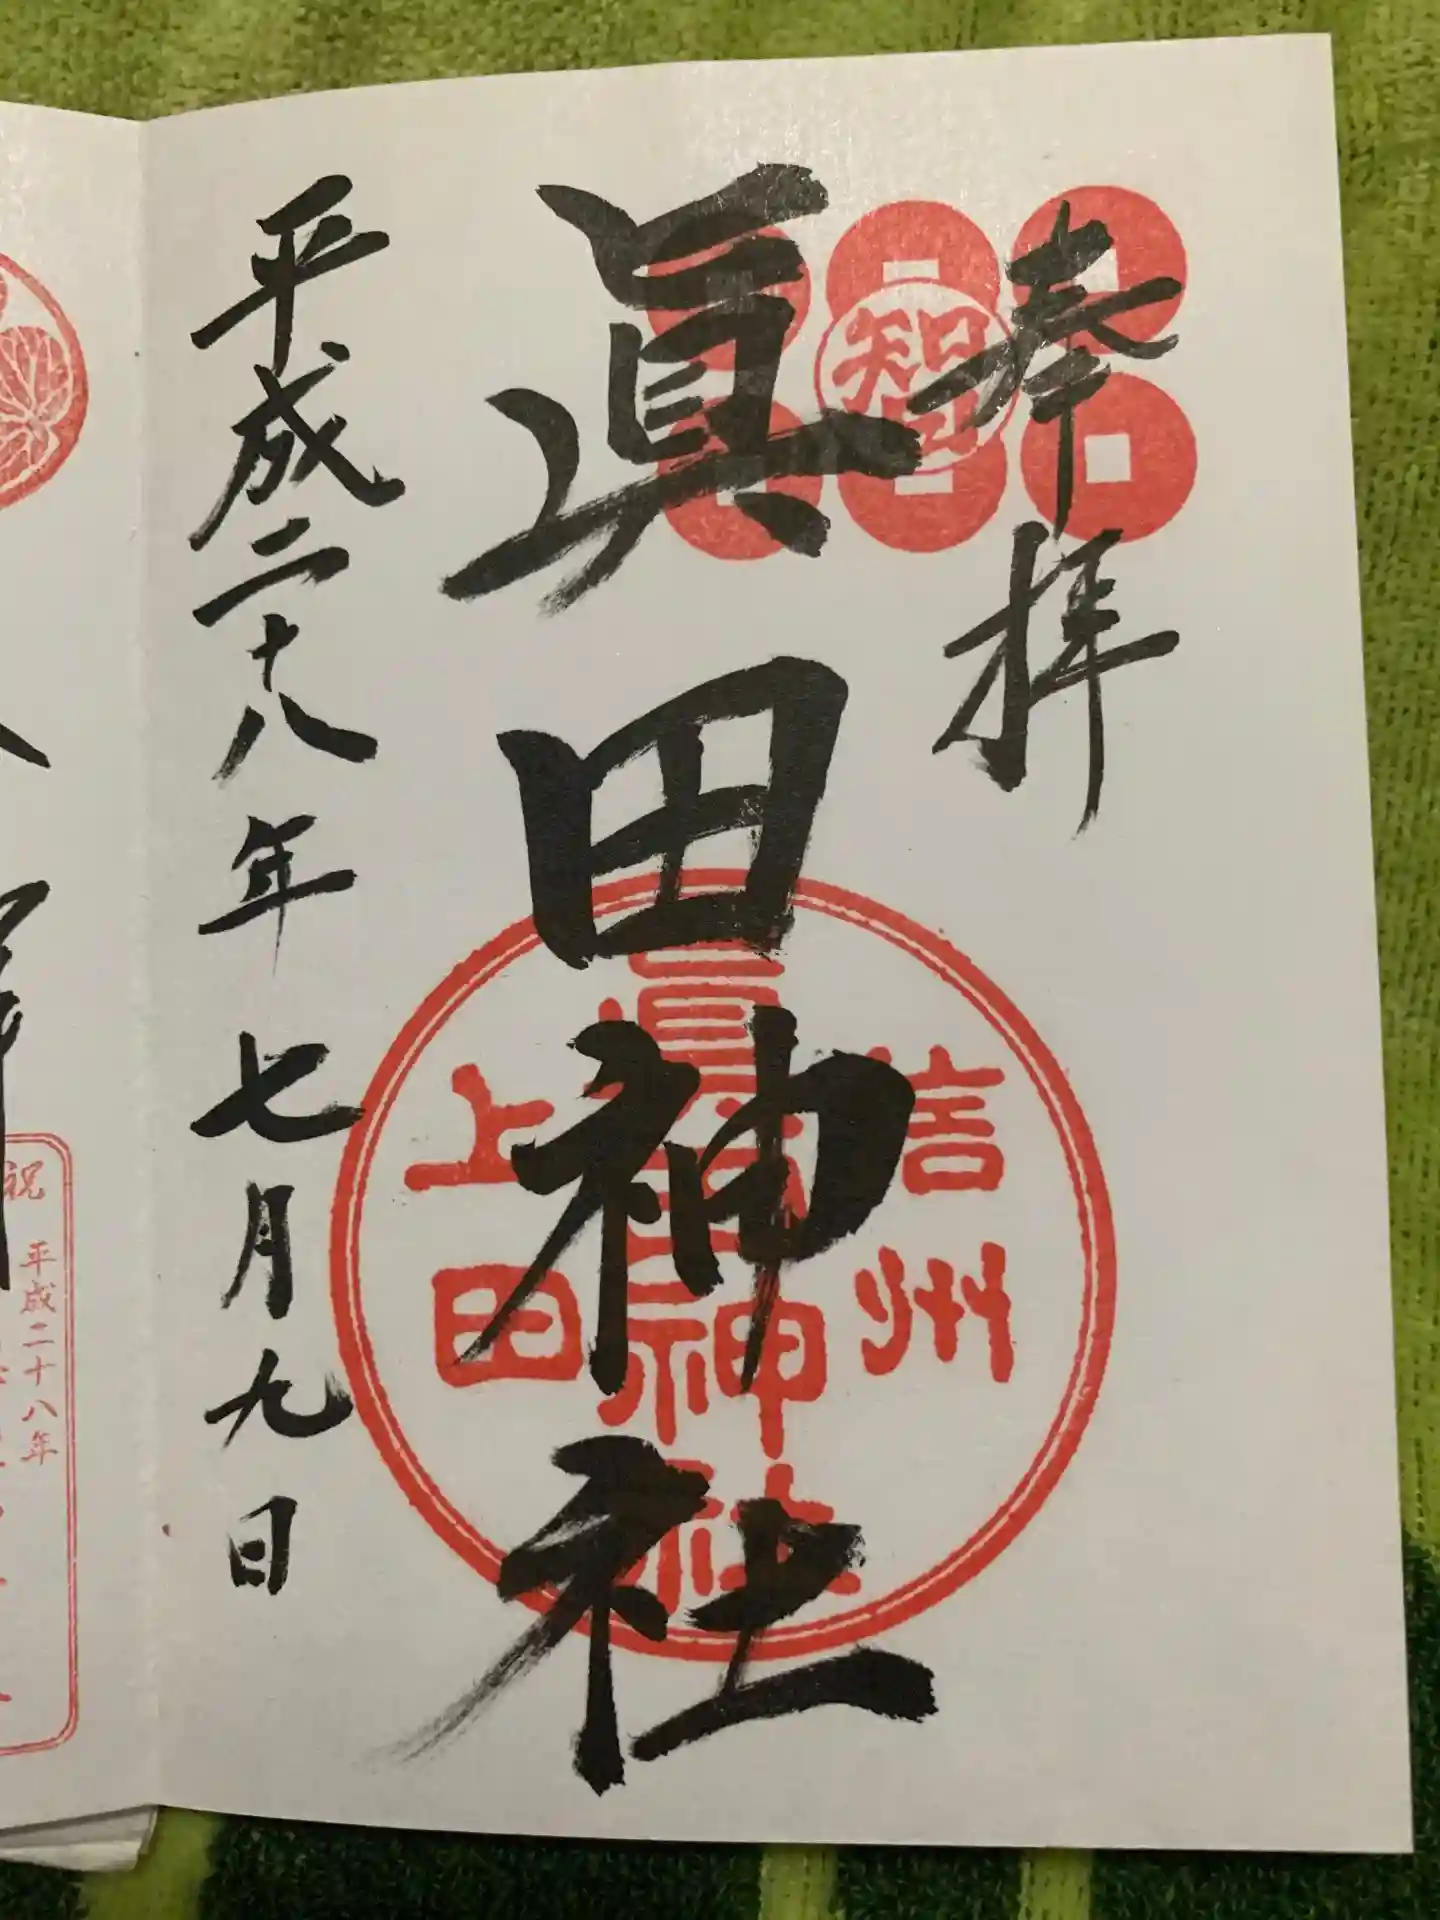 奉拝
智
眞田神社
信州
眞田神社
上田
平成二十八年七月九日
祝
平成二十八年